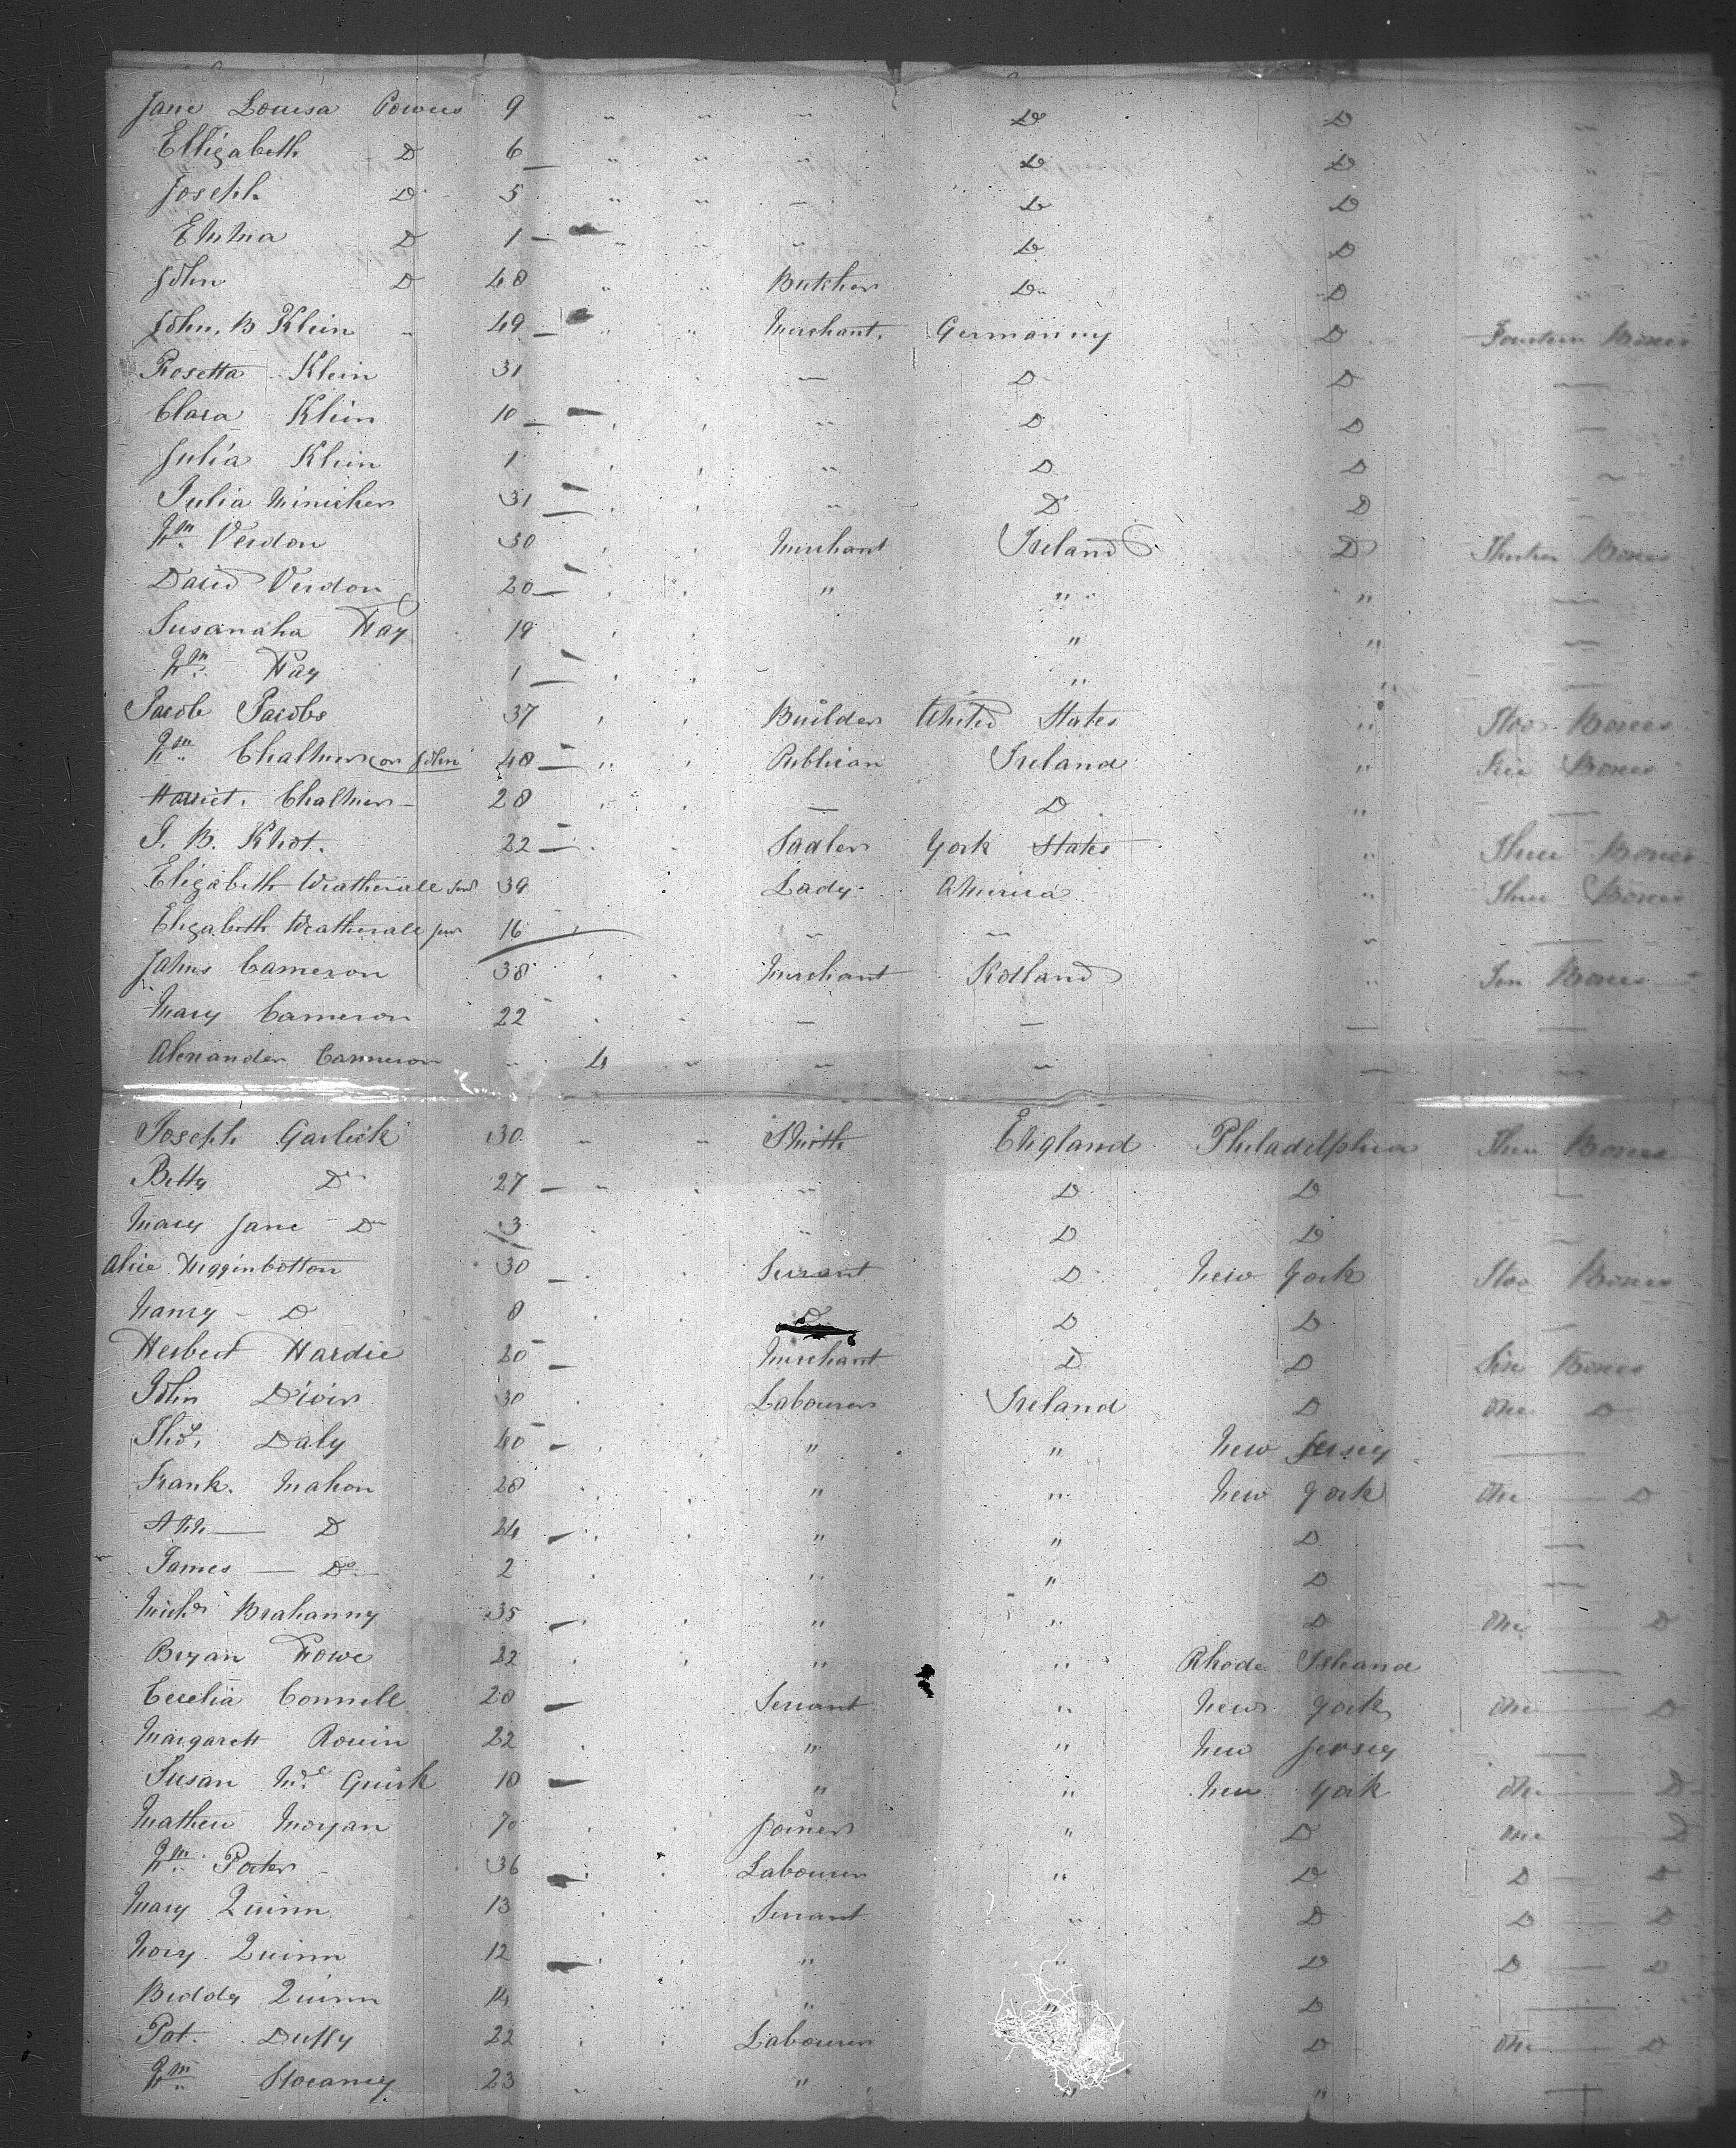 Jane Louisa Powers 9 " " " D D "
Elligabeth D 6 " " " D D "
Joseph D 5 " " - D D "
Emma D 1 " " " D D "
John D 48 " " Butcher D D "
John. B Klein 49 " " Merchant. Germanny D Fourteen Boxes
Rosetta Klein 31 — D D —
Clara Klein 10 " D D —
Julia Klein 1 " D D
Julia Minicher 31 " D D —
Wm Verdon 50 Merchant Ireland D Boxes
David Verdon 20 " " " —
Susanaha Fay 19 " " —
Wm Fay 1 " " —
Jacob Jacobs 37 Builder United States " Two Boxes
Wm Chalmers or John 48 " Publican Ireland " Five Boxes
Harriet. Chalmers 28 — D " —
J. B. Knot. 22 Sadler York States " Three Boxes
Elizabeth Weatherall Sen 39 Lady America " Three Boxes
Elizabeth Weatherall jun 16 " " " —
James Cameron 38 Merchant Scotland " Ten Boxes
Mary Cameron 22 — — — —
Alexander Cameron " 4 " " " — "
Joseph Garlick 30 " " Smith England Philadelphia Three Boxes
Betty D 27 " " D D —
Mary Jane D 3 " D D
Alice Higginbotton 30 Servant D New York Two Boxes
Nancy D 8 D D D —
Herbert Hardie 20 Merchant D D Six Boxes
John 30 Labourer Ireland D One D
Thos. Daly 40 " " New Jersey —
Frank. Mahon 28 " " New York One — D
Ann — D 24 " " D —
James — Do 2 " " D —
Michl Brahanny 35 " " D One — D
Bryan Howe 22 " " Rhode Isleand —
Cecelia Connell 20 Servant " New York One — D
Margarett Rouin 22 " " New Jersey —
Susan Mc Guirk 18 " " New York One — D
Mathew Morgan 70 Joiner " D One D
Wm Porter 36 Labourer " D D — D
Mary Quinn 13 Servant " D D — D
Nory Quinn 12 " " D D — D
Biddy Quinn 14 " " D —
Pat. Duffy 22 Labourer D One — D
Wm 23 " " " —